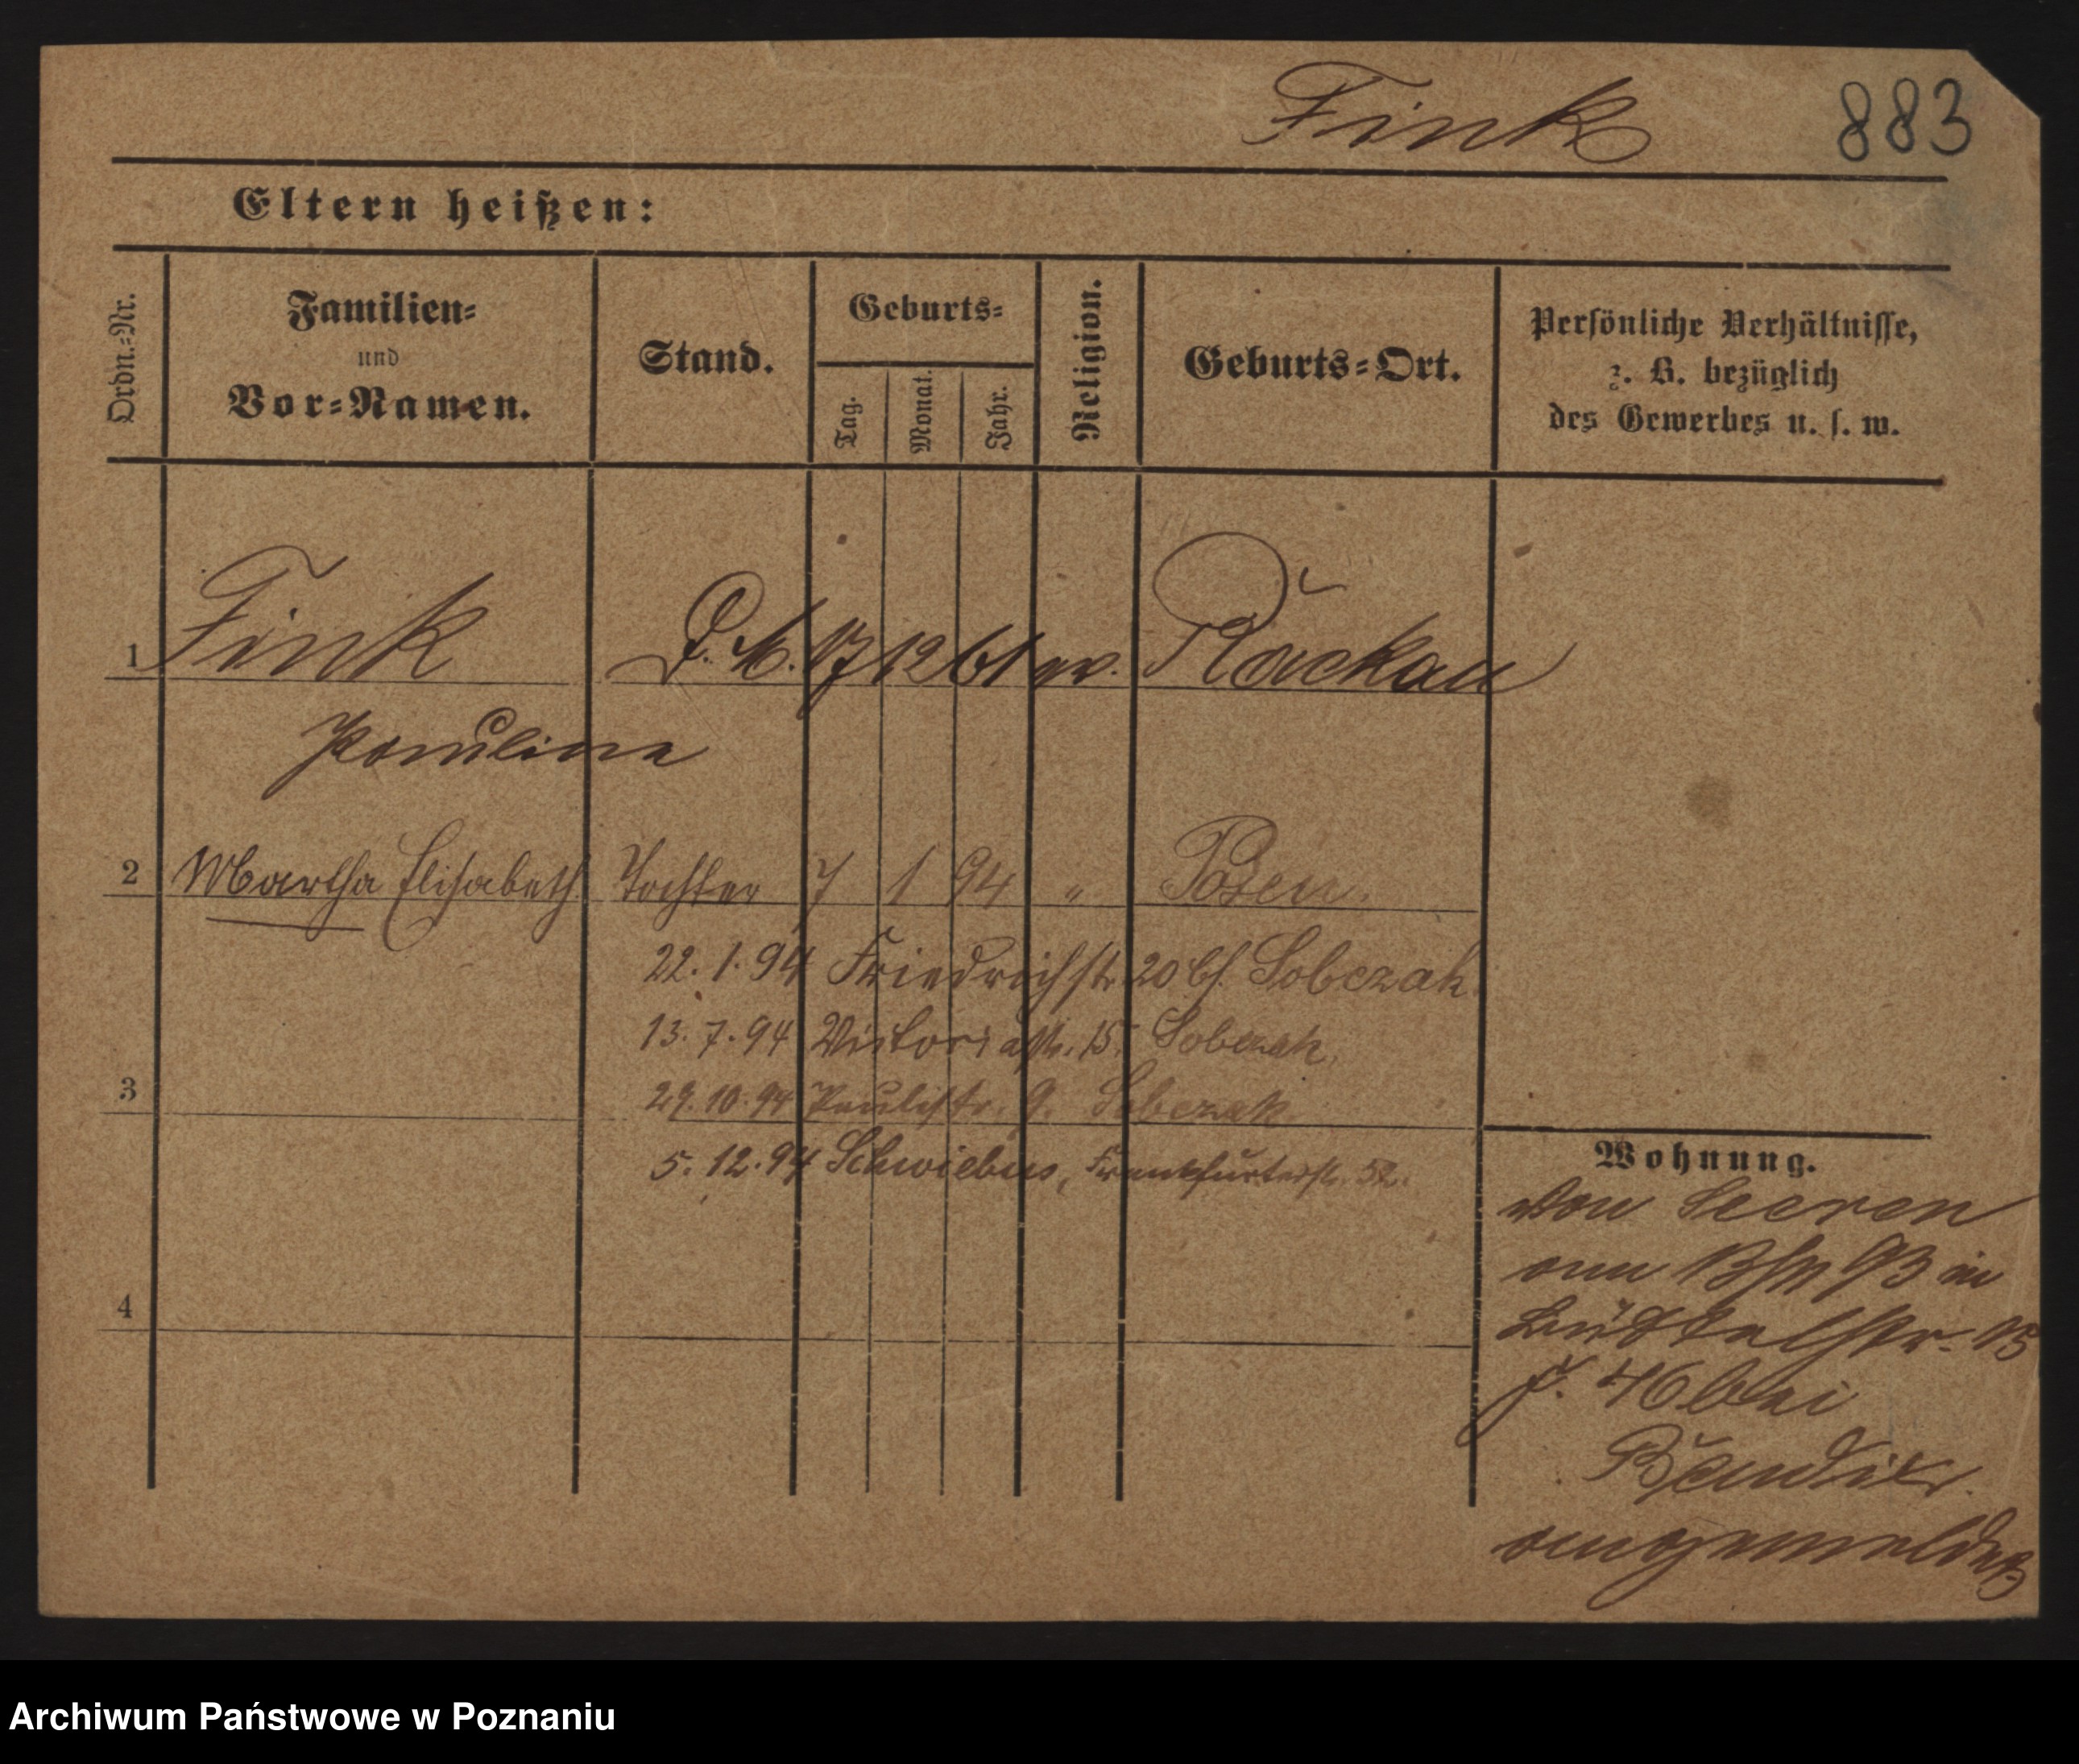 Fink 883
Eltern heißen:
Ordn.=Nr. Familien= und Vor=Namen. Stand. Geburts= Tag. Monat. Jahr. Religion. Geburts=Ort. Persönliche Verhältnisse, z. B. bezüglich des Gewerbes u. s. w.
1 Fink D. M. 17 12 61 ev. Räckau
Pauline
2 Martha Elisabeth Tochter 7 1 94 " Posen.
22. 1. 94 Friedrichstr. 20 bf. Sobczak
13. 7. 94 Victoriastr. 15. Sobczak
3
29. 10. 94 Paulistr. 9. Sobczak
5. 12. 94 Schwiebus, Frankfurterstr. 52.
4
Wohnung.
von Seeren
am 93 in
15
J. 46 bei
angemeldet
Archiwum Państwowe w Poznaniu